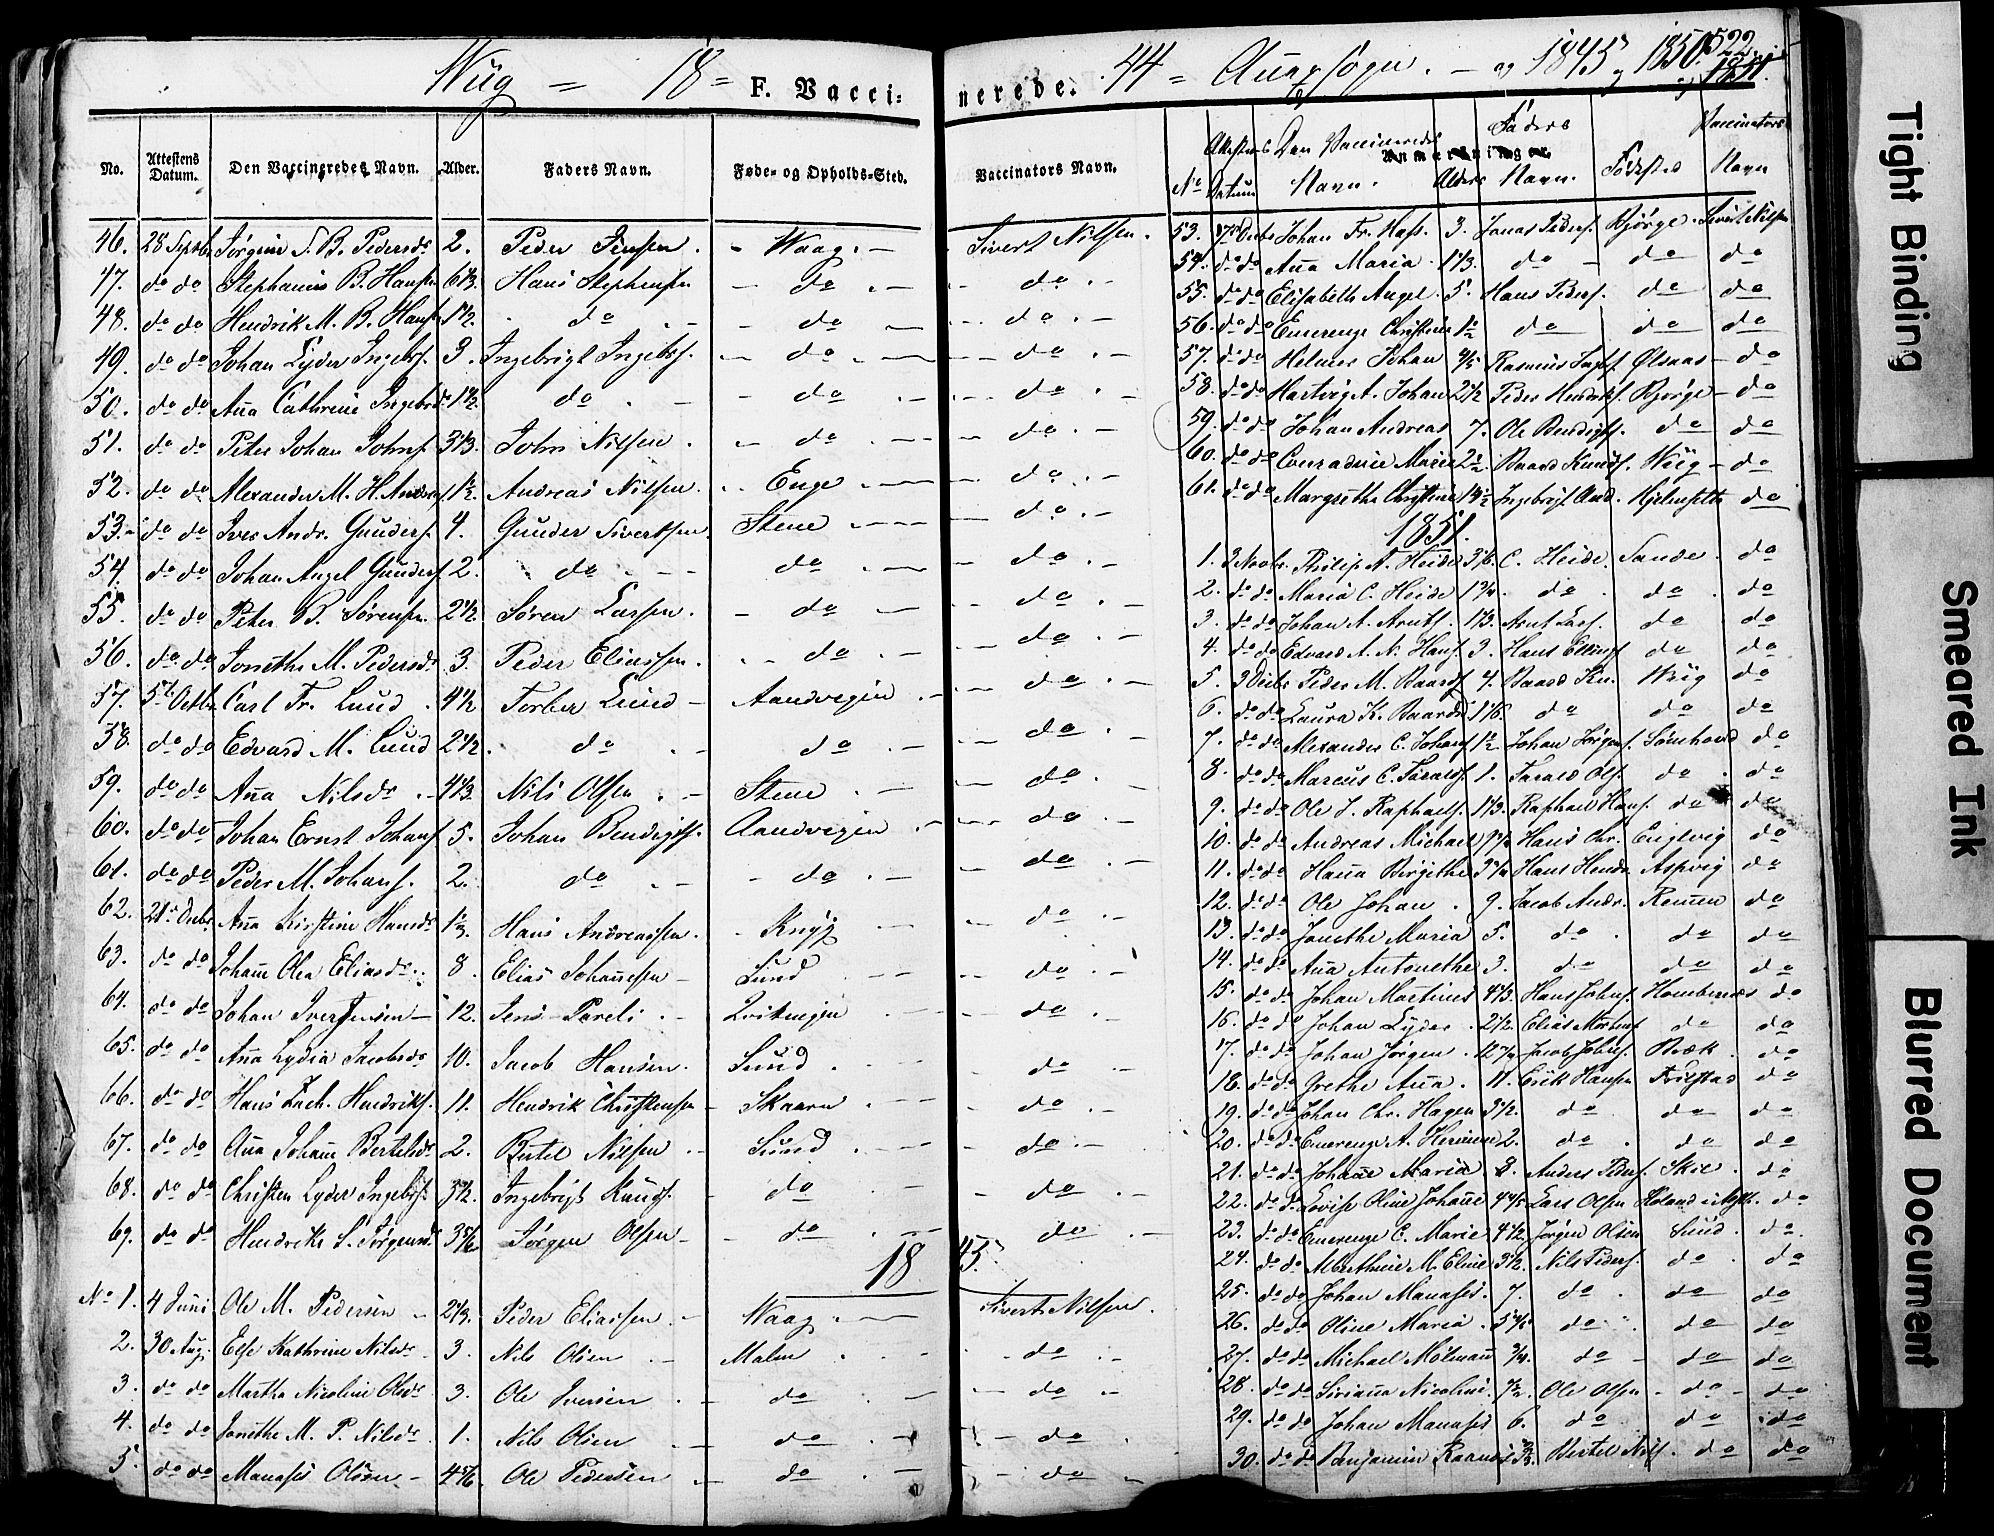 Wiig = 18 = F. Vacci= nerede. 44 = Augsogn. - og 1845 og 1850. 522
og 1851.
No. Attestens Datum. Den Vaccineredes Navn. Alder. Faders Navn. Føde- og Opholds-Sted. Vaccinators Navn.
46. 28 Septbr Jørgine S. B. Pedersdr 2. Peder Jensen. - Waag. - Sivert Nilsen.
47. do do Stephanus B. Hansen 6 1/3. Hans Stephensen - do. - do. -
48. do do Hendrik M. B. Hans. 1 1/2. do - do - do. -
49. do do Johan Lyder Ingebr. 3. Ingebrigt Ingebr. - do. - do. -
50. do do Ana Cathrine Ingebrdr 1 1/2. do. - do. - do. -
51. do do Peter Johan Johns. 3 1/3. John Nilsen. - do. - do. -
52. do do Alexander M. H. Andreas. 1 1/2. Andreas Nilsen. Enge. - do. -
53. do do Iver Andr. Gunders. 4. Gunder Sivertsen. Stene - do. -
54. do do Johan Angel Gunders. 2. do. - do. - do. -
55. do do Peter B. Sørensen. 2 1/2 Søren Larsen. - do - do. -
56. do do Jonethe M. Pedersdr 3. Peder Eliassen. do. - do. -
57. 5t Octbr Carl Fr. Lund. 4 1/2 Torber Lund - Aandvegen. - do. -
58. do do Edvard M. Lund 2 1/2. do. - do. - do. -
59. do do Ana Nilsdr. 4 1/3. Nils Olsen. - Stene. - do.
60. do do Johan Ernst Johans. 5. Johan Bendigts. Aandvegen. - do. -
61. do do Peder M. Johans. 2. do. - - do. - do. -
62. 21 Decbr Ana Kirstine Hansdr 1 1/3. Hans Andreassen. - Knyg - do. -
63. do do Johane Olea Eliasdr. 8. Elias Johanesen - Lund - do. -
64. do do Johan Iver Jensen - 12. Jens Pareli. - - do. -
65. do do Ana Lydia Jacobsdr 10. Jacob Hansen. Sund. do. -
66. do do Hans Zach. Hendriks. 11. Hendrik Christensen - Skaarn - do. -
67. do do Ana Johane Bertelsdr 2. Bertel Nilsen - Sund. - do. -
68. do do Christen Lyder Ingebr. 3 1/2. Ingebrigt Knuds. - do. - do. -
69. do do Hendrikke S. Jørgensdr 3 5/6 Jørgen Olsen - - do. - do. -
18 45.
No 1. 4 Juni Ole M. Pedersen - 2 1/3. Peder Eliassen. - Waag. - Sivert Nilsen.
2. 30 Aug. Else Kathrine Nilsdr 3. Nils Olsen - Malm. - do. -
3. do do Martha Nicoline Olsdr 3. Ole Iversen. - do - do -
4. do do Jonethe M. P. Nilsdr. 1. Nils Olsen - do. - do.
5. do do Manasse Olsen - 4 5/6. Ole Pedersen - do. - do
No Attestens Datum Den Vaccineredes Navn. Alders Faders Navn. Fødested Vaccinators Navn
Anmærkninger.
53. 7de Decbr Johan Fr. Hafs. 3. Jonas Peders. Bjørge. Sivert Nilsen
54. do do Ana Maria. 1 1/3. do - do do
55. do do Elisabeth Angel. 5. Hans Peders. do do
56. do do Emerenze Christine 1 1/2 do do do
57. do do Helmer Johan 4/5 Rasmus Olsaas - do
58. do do Hartvig A. Johan 2 1/2 Peder Hendriks. Bjørge - do
59. do do Johan Andreas 7. Ole Bendigts. do do
60. do do Conradine Marie 2 1/2 Baard Knuds. Wiig - do
61. do do Margrethe Christine 1 1/2 Ingebrigt And. Hjelmseth do
1851.
1. 3 Novbr. Philip A. Heide 3 1/6. C. Heide. Sande. do
2. do do Maria C. Heide 1 3/4. do. do. do
3. do do Johan A. Arnts. 1 1/3. Arnt Lars. do do
4. do do Edvard A. N. Hans. 3. Hans Ellings. do do
5. 3 Decbr Peder M. Baards. 4. Baard Kn. Wiig do
6. do do Laura K. Baardsd. 1 1/6. do do do
7. do do Alexander C. Johans. 1 1/2. Johan Jørgens. Sørnhoved do
8. do do Marcus C. Tarals. 1. Tarald Ols. do. do
9. do do Ole J. Raphaels. 1 1/3. Raphael Hans. do do
10. do do Andreas Michael Hans Chr. Englvig do
11. do do Hana Birgithe 3 3/4 Hans Hendr. Aspvig do
12. do do Ole Johan. 9. Jacob Andr. Remen do
13. do do Jonethe Maria 5. do. do do
14. do do Ana Antonethe 3. do do do
15. do do Johan Martines 4 1/3. Hans Johns. Hombornæs do
16. do do Johan Lyder. 2 1/2. Elias Mortens. do do
17. do do Johan Jørgen. 12 3/4 Jacob Johns. Bæk. do
18. do do Grethe Ana. 11. Erik Hansen Frilstad do
19. do do Johan Chr. Hagen 3 1/2. do. do do
20. do do Emerenze A. Hermine 2. do. do do
21. do do Johane Maria 8. Anders Peders. Skie. do
22. do do Lovise Oline Johane 4 4/5 Lars Olsen do
23. do do Emerenze C. Marie 4 1/2. Jørgen Olsen Sund. do.
24. do do Albertine M. Eline 3 1/2. Nils Peders. do. do
25. do do Johan Manases. 7. do. do do
26. do do Oline Maria. 5 5/6. do. do do
27. do do Michael Molman 3/4. do - do do
28. do do Siriana Nicoline. 7 1/2. Ole Olsen - do - do
29. do do Johan Manases 6. do. do do
30. do do Benjamin Bertel Nils. do do
Tight Binding
Smeared Ink
Blurred Document